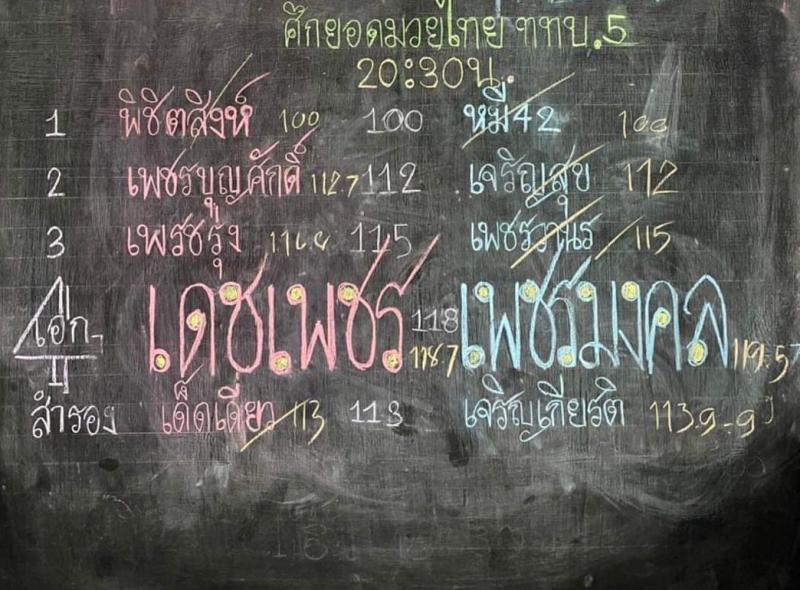 ศึกยอดมวยไทย ททบ.5
20:30น.
1 พิชิตสิงห์ 100 100 หมี42 100
2 เพชรบุญศักดิ์ 112.7 112 เจริญสุข 112
3 เพรชรุ่ง 115 เพชรวานร 115
เอก เดชเพชร 118 118.7 เพชรมงคล 119.5
สำรอง เด็ดเดี่ยว 113 113 เจริญเกียรติ 113.9